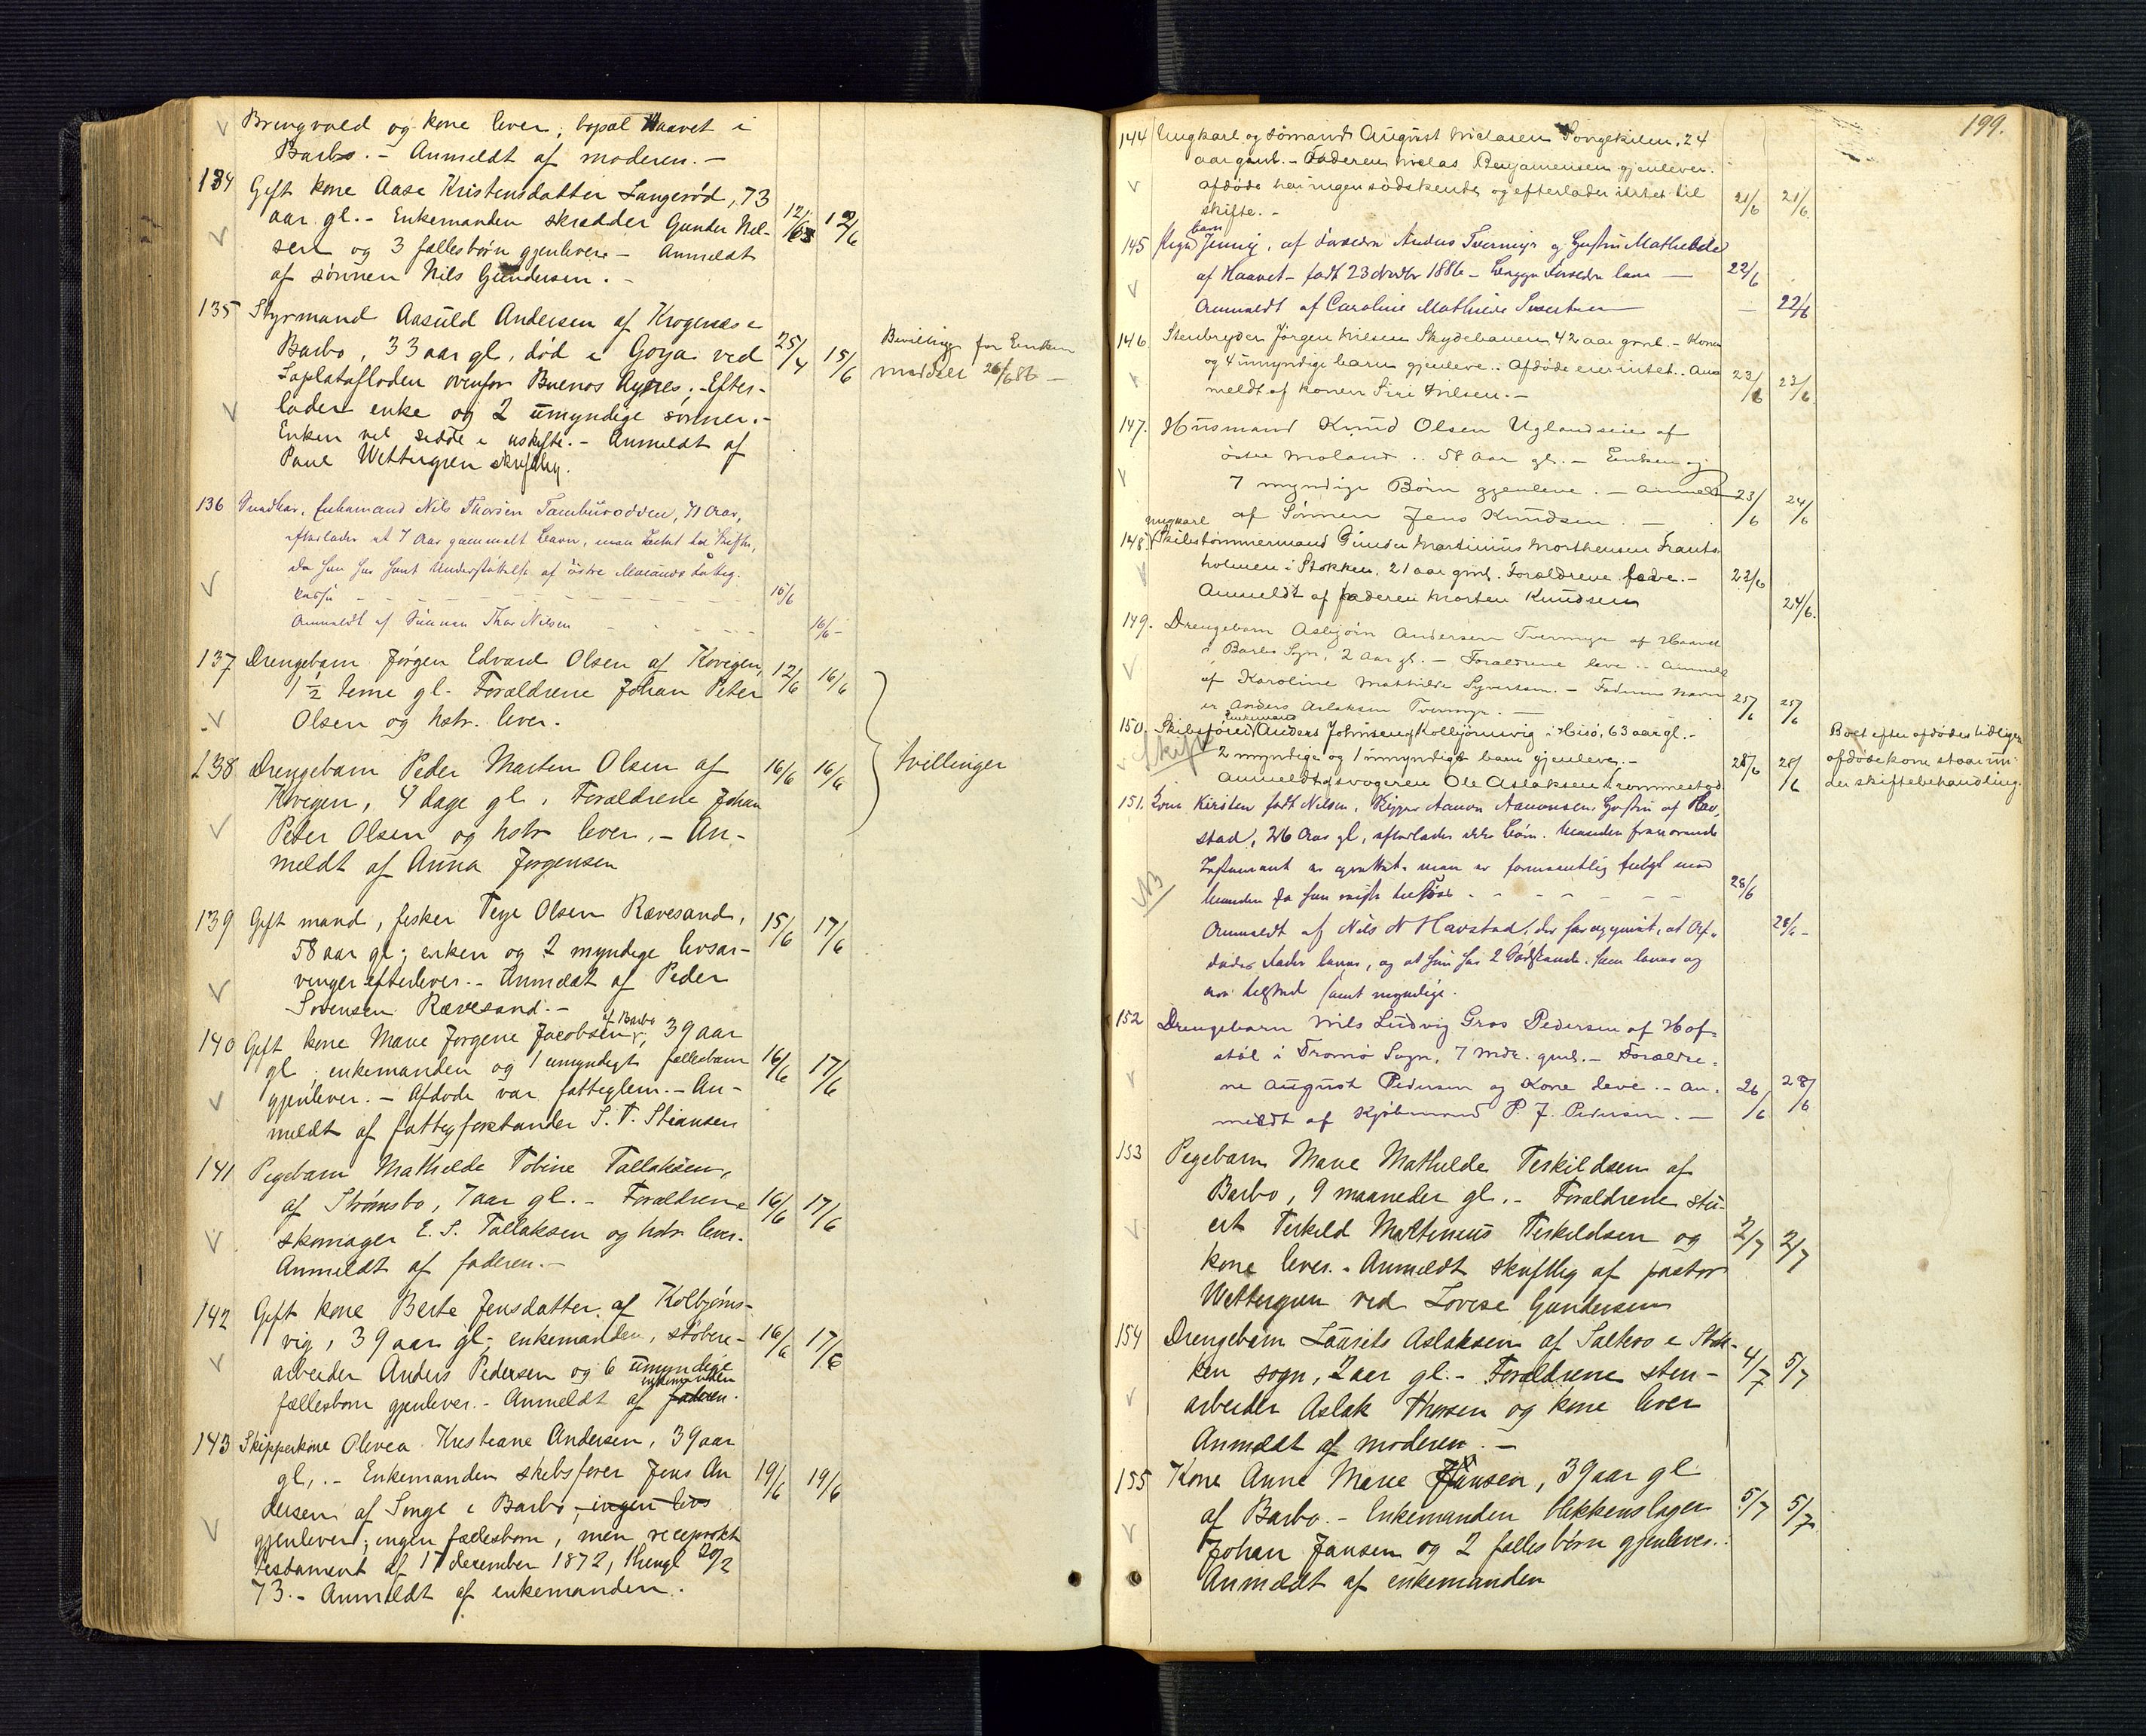 Bringvold og kone lever; bopæl Haavet i
Barbo. - Anmeldt af moderen. -
134 Gift kone Aase Kristensdatter Langerød, 73
aar gl. - Enkemanden skrædder Gunder Nil-
12/6 12/6
sen og 3 fællesbørn gjenlever - Anmeldt
af sønnen Nils Gundersen. -
135 Styrmand Aasuld Andersen af Krogenæs i
Barbo, 33 aar gl, død i Goya ved
25/4 15/6
Bevilling for Enken
meddelt 26/6 86 -
Laplatafloden ovenfor Buenos Ayres; - Efter-
lader enke og 2 umyndige sønner. -
Enken vil sidde i uskifte. - Anmeldt af
Paul Wettergren skriftlig.
136 Enkemand Nils Thorsen Tambürodden, 71 Aar,
efterlader et 7 Aar gammelt Barn, men Intet til Skifte,
da han har havt Understøttelse af østre Molands Fattig-
kasse - - - 15/6
Anmeldt af Sønnen Thor Nilsen - - - 16/6 -
137 Drengebarn Jørgen Edvard Olsen af Kovigen,
12/6 16/6
1 1/2 time gl. Forældrene Johan Peter
Olsen og hstr. lever.
138 Drengebarn Peder Marten Olsen af
16/6 16/6
tvillinger
Kovigen, 4 dage gl, Forældrene Johan
Peter Olsen og hstr lever, - An-
meldt af Anna Jørgensen
139 Gift mand, fisker Terje Olsen Rævesand,
15/6 17/6
58 aar gl; enken og 2 myndige livsar-
vinger efterlever. - Anmeldt af Peder
Sørensen Rævesand. -
140 Gift kone Marie Jørgine Jacobsen af Barbo, 39 aar
gl; enkemanden og 1 umyndigt fællesbarn
16/6 17/6
gjenlever. - Afdøde var fattiglem. - An-
meldt af fattigforstander S. T. Stiansen
141 Pigebarn Mathilde Tobine Tallaksen,
af Strømsbo, 7 aar gl. - Forældrene
16/6 17/6
skomager E. S. Tallaksen og hstr lever.
Anmeldt af faderen. -
142 Gift kone Berte Jensdatter af Kolbjørns-
vig, 39 aar gl; enkemanden, støberi-
16/6 17/6
arbeider Anders Pedersen og 6 umyndige
fællesbørn gjenlever. - Anmeldt af faderen. enkemanden
143 Skipperkone Olivea Kristiane Andersen, 39 aar
gl, . - Enkemanden skibsfører Jens An
19/6 19/6
dersen af Songe i Barbo, ingen livs
gjenlever; ingen fællesbørn, men reciprokt
testament af 17 december 1872, thingl 20/2
73. - Anmeldt af enkemanden.
199.
144 Ungkarl og sømand August Nielasen Songekilen, 24
aar gml. - Faderen Nielas Benjaminsen gjenlever.
Afdøde har ingen sødskende og efterlader intet til
skifte. - 21/6 21/6
145 Pigebarn Jenny, af Anders Tvermyr og Hustru Mathilde
af Haavet - født 23 Novbr 1886 - Begge Forældre leve - 22/6
Anmeldt af Caroline Mathilde Sivertsen - 22/6
146 Stenbryder Jørgen Nilsen Skydebanen 42 aar gml. - Konen
og 4 umyndige barn gjenleve. - Afdøde eier intet. - An-
23/6 23/6
meldt af konen Siri Nilsen. -
147. Husmand Knud Olsen Uglandseie af
østre Moland .. 58 aar gl. - Enken og
7 myndige Børn gjenleve. - Anmeldt
23/6 24/6
af Sønnen Jens Knudsen. -
148 ungkarl Skibstømmermand Gunder Martinius Morthensen Frants
holmen i Stokken, 21 aar gml. Forældrene leve. - 22/6
Anmeldt af faderen Morten Knudsen 24/6.
149. Drengebarn Asbjørn Andersen Tvermyr af Haavet
i Barbo Sogn, 2 Aar gl. - Forældrene leve .. Anmeldt
af Karoline Mathilde Syvertsen. - Faderens navn
er Anders Aslaksen Tvermyr. - 25/6 25/6
150. Skibsfører Enkemand Anders Johnsen Kolbjørnsvig i Hisø, 63 aar gl. -
Skifte
2 myndige og 1 umyndigt barn gjenlever. - 28/6 28/6
Boet efter afdødes tidligere
afdøde kone staar un-
der skiftebehandling.
Anmeldt af svogeren Ole Aslaksen Frommestad
151. Kone Kirsten født Nilsen, Skipper Aanon Aanonsens Hustru af Hav-
stad, 26 Aar gl, efterlader ikke Børn. Manden fraværende
Testament er oprettet, men er formentlig fulgt med
NB
Manden da han reiste tilsjøs - - - 28/6
Anmeldt af Nils N Havstad, der har opgivet, at Af-
28/6 -
dødes Fader lever, og at hun har 2 Sødskende, som lever og
samt myndige.
152 Drengebarn Nils Ludvig Gros Pedersen af Hof-
støl i Tromø Sogn, 7 mdr. gml. - Forældre-
ne August Pedersen og Kone leve. - An-
26/6 28/6
meldt af Kjøbmand P. J. Pedersen. -
153 Pigebarn Marie Mathilde Terkildsen af
Barbo, 9 maaneder gl. - Forældrene stu-
ert Terkild Martinius Terkildsen og
2/7 2/7
kone lever. - Anmeldt skriftlig af pastor
Wettergren ved Lovise Gundersen
154 Drengebarn Laurits Aslaksen af Salterø i Stok-
ken sogn, 2 aar gl. - Forældrene sten-
4/7 5/7
arbeider Aslak Thorsen og kone lever
Anmeldt af moderen. -
155 Kone Anne Marie Jansen, 39 aar gl
af Barbo. - Enkemanden blikkenslager
5/7 5/7
Johan Jansen og 2 fællesbørn gjenlever.
Anmeldt af enkemanden